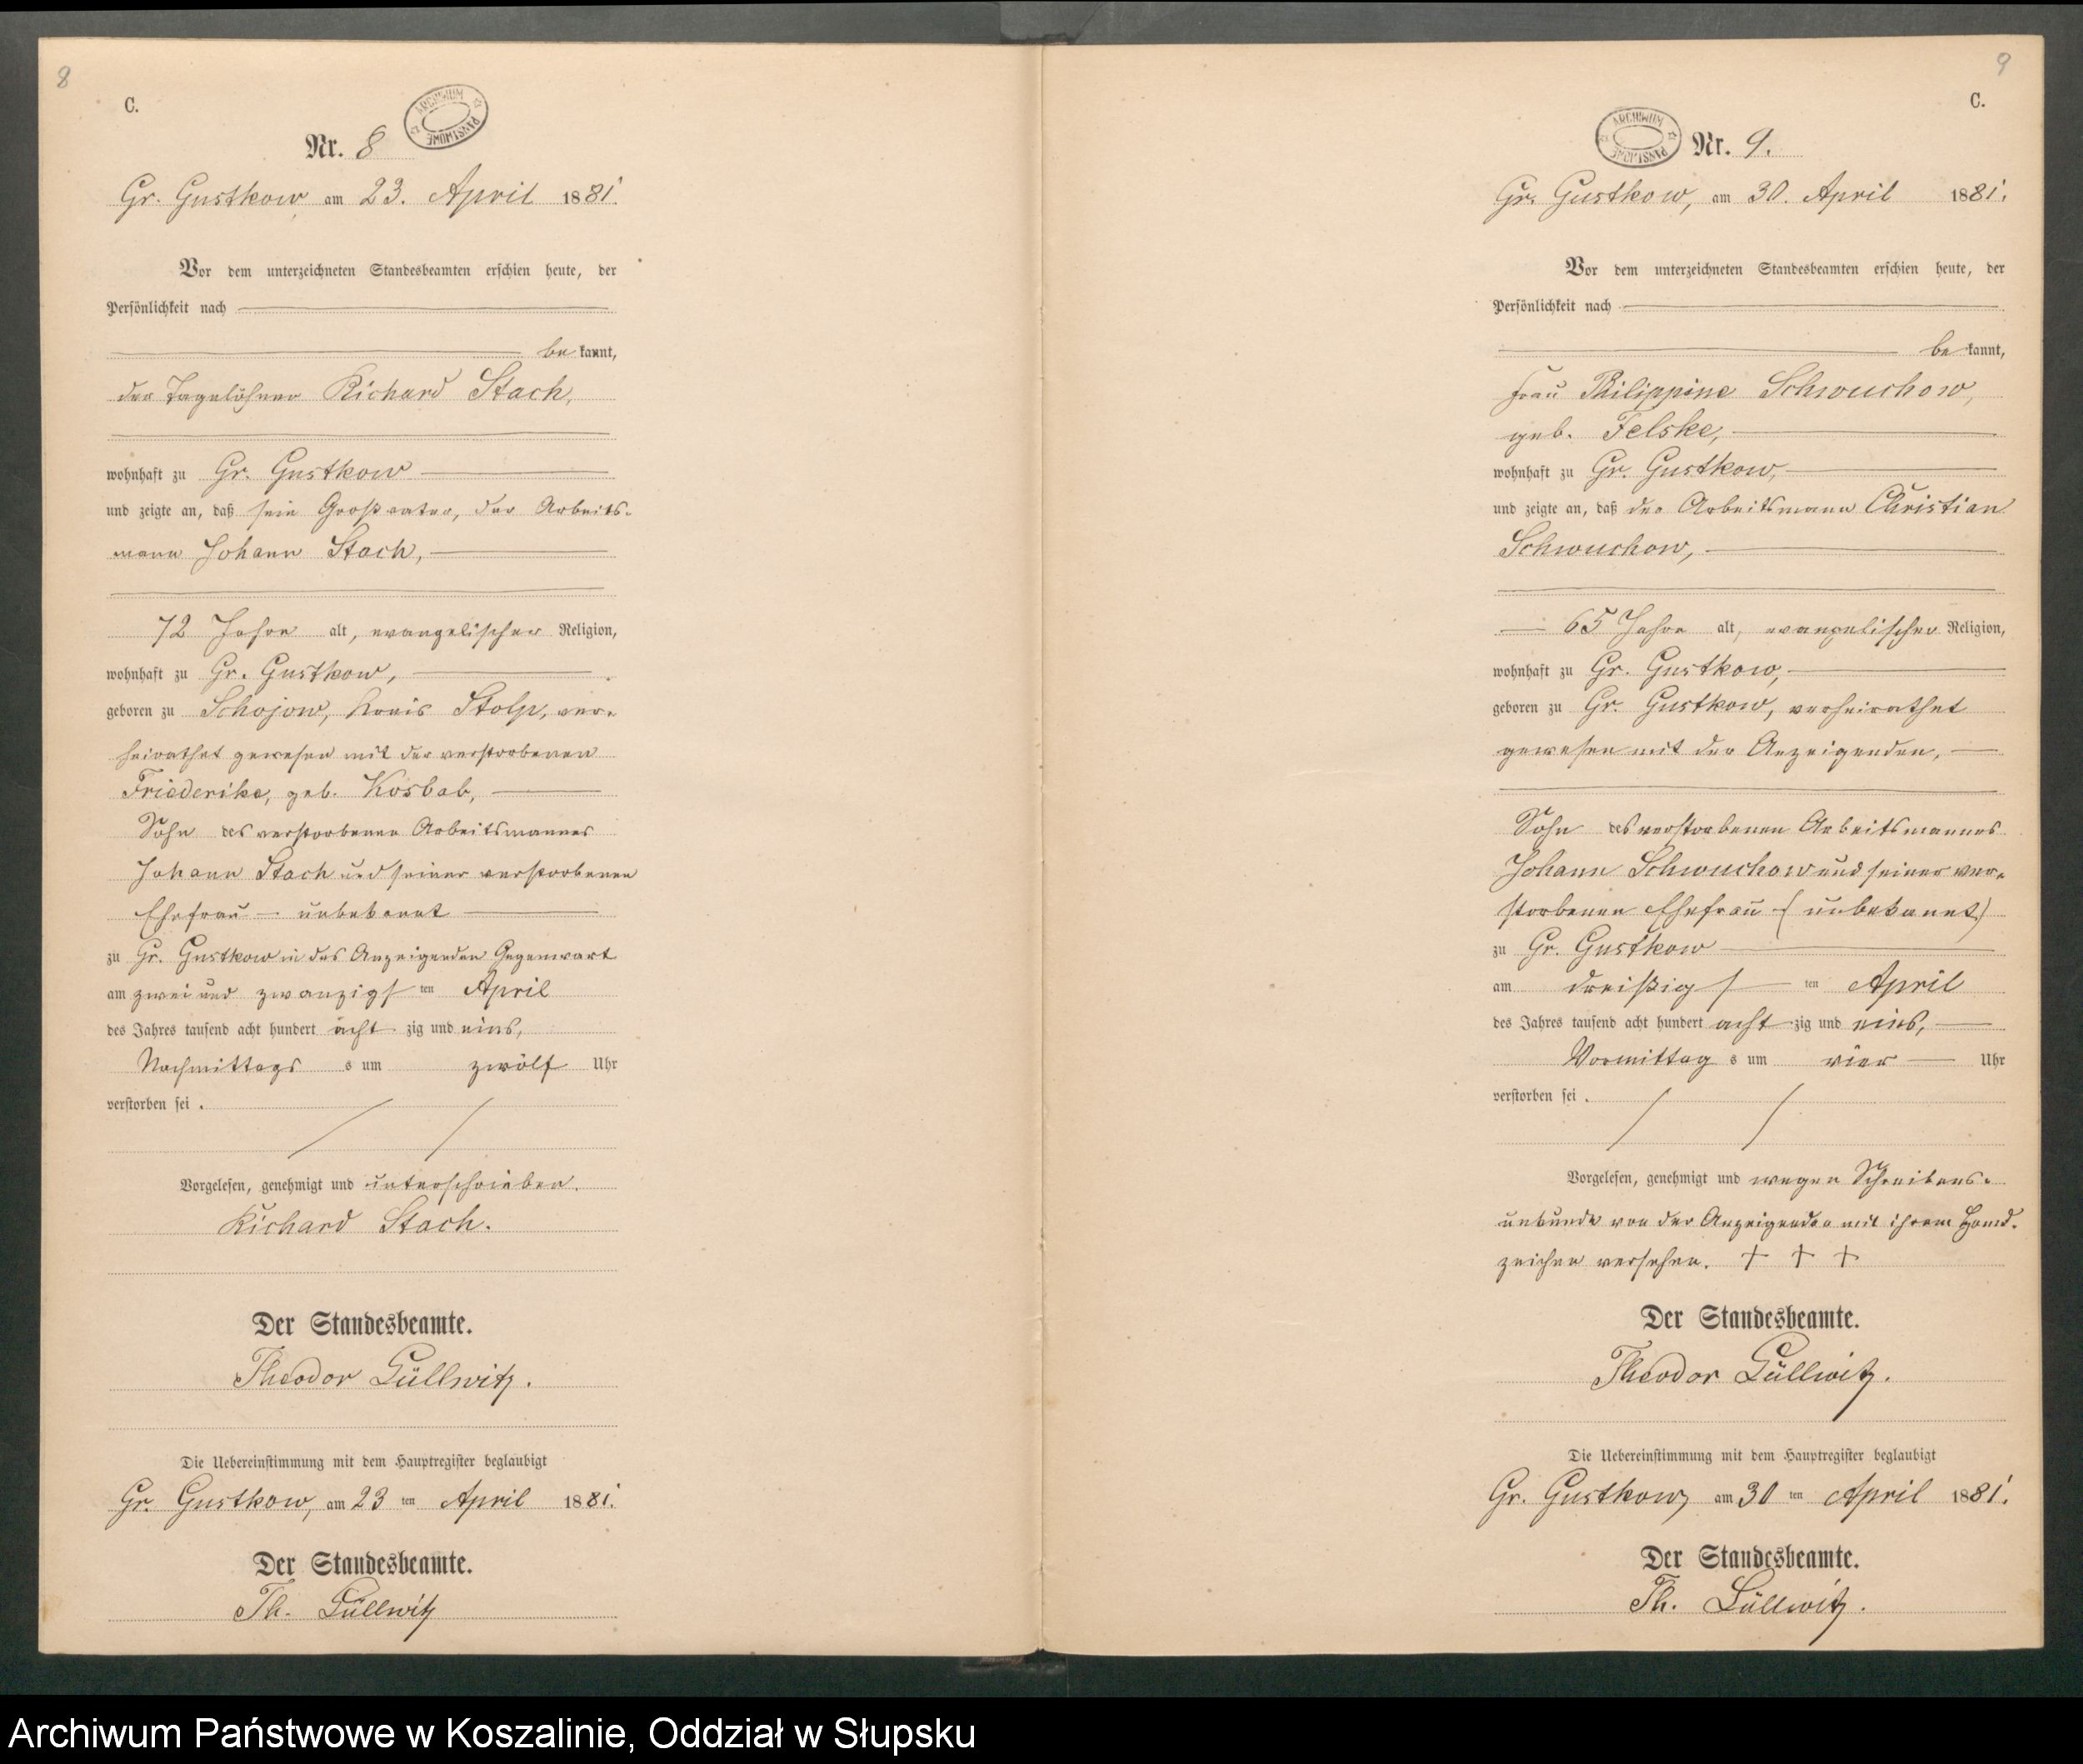 8
C.
ARCHIWUM PAŃSTWOWE
Nr. 8
Gr. Gustkow, am 23. April 1881.
Vor dem unterzeichneten Standesbeamten erschien heute, der
Persönlichkeit nach
be kannt,
der Tagelöhner Richard Stach,
wohnhaft zu Gr. Gustkow
und zeigte an, daß sein Großvater, der Arbeits-
mann Johann Stach,
72 Jahre alt, evangelischer Religion,
wohnhaft zu Gr. Gustkow,
geboren zu Schojow, Kreis Stolp, ver-
heirathet gewesen mit der verstorbenen
Friederike, geb. Kosbab,
Sohn des verstorbenen Arbeitsmannes
Johann Stach und seiner verstorbenen
Ehefrau – unbekannt
zu Gr. Gustkow in des Anzeigenden Gegenwart
am zwei und zwanzigs ten April
des Jahres tausend acht hundert acht zig und eins,
Nachmittags s um zwölf Uhr
verstorben sei.
Vorgelesen, genehmigt und unterschrieben.
Richard Stach.
Der Standesbeamte.
Theodor Lüllwitz.
Die Uebereinstimmung mit dem Hauptregister beglaubigt
Gr. Gustkow, am 23 ten April 1881.
Der Standesbeamte.
Th. Lüllwitz
9
C.
ARCHIWUM PAŃSTWOWE
Nr. 9.
Gr. Gustkow, am 30. April 1881.
Vor dem unterzeichneten Standesbeamten erschien heute, der
Persönlichkeit nach
be kannt,
Frau Philippine Schwuchow,
geb. Felske,
wohnhaft zu Gr. Gustkow,
und zeigte an, daß der Arbeitsmann Christian
Schwuchow,
65 Jahre alt, evangelischer Religion,
wohnhaft zu Gr. Gustkow,
geboren zu Gr. Gustkow, verheirathet
gewesen mit der Anzeigenden,
Sohn des verstorbenen Arbeitsmannes
Johann Schwuchow und seiner ver-
storbenen Ehefrau (unbekannt)
zu Gr. Gustkow
am dreißigs ten April
des Jahres tausend acht hundert acht zig und eins,
Vormittag s um vier Uhr
verstorben sei.
Vorgelesen, genehmigt und wegen Schreibens-
unkunde von der Anzeigenden mit ihrem Hand-
zeichen versehen. + + +
Der Standesbeamte.
Theodor Lüllwitz.
Die Uebereinstimmung mit dem Hauptregister beglaubigt
Gr. Gustkow, am 30 ten April 1881.
Der Standesbeamte.
Th. Lüllwitz.
Archiwum Państwowe w Koszalinie, Oddział w Słupsku